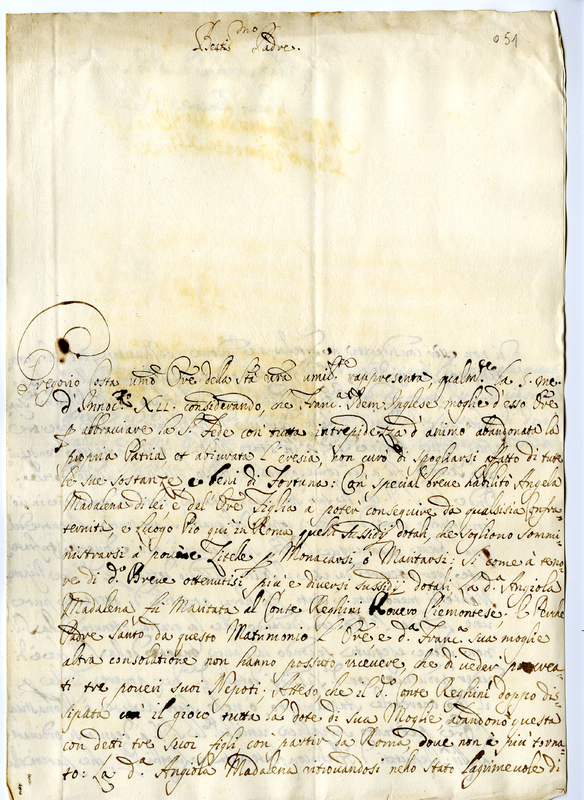 Beat.mo Padre.
051
Gregorio Costa um.o Ore. della S.tà V.ra umil.te rappresenta, qualm.te la S. me.
d'Innoc.o XII. considerando, che Franc.a Idem Inglese moglie d'esso Ore
p abbraciare la S. Fede con tutta intrepidenza d'animo abandonata la
propria Patria et abiurata l'eresia, non curò di spogliarsi affatto di tute
le sue sostanze e beni di Fortuna: Con special breve habilitò Angela
Madalena di lei e del Ore Figlia a poter conseguire da qualsisia Confra=
ternita e Luogo Pio qui in Roma quelli sussidij dotali, che sogliono sommi=
nistrarsi a povere Zitelle p Monacarsi ò Maritarsi: Si come à teno=
re di d.o Breve ottenutisi più e diversi sussidij dotali la d.a Angiola
Madalena fu Maritata al Conte Reghini Rovero Piemontese. E
Padre Santo da questo Matrimonio l'Ore e d.a Franc.a sua moglie
altra consolatione non hanno possuto ricevere, che di veder
ti tre poveri suoi Nepoti: Atteso, che il d.o Conte Reghini doppo di=
sipata con il gioco tutta la dote di sua Moglie abandonò questa
con detti tre suoi figli con partir da Roma, dove non è più torna=
to: La d.a Angiola Madalena ritrovandosi nello stato lagrimevole di